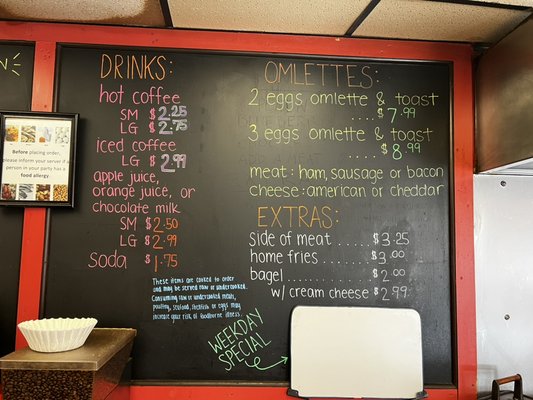 Before placing order,
please inform your server if a
person in your party has a
food allergy.
DRINKS:
hot coffee
SM $2.25
LG $2.75
iced coffee
LG $2.99
apple juice,
orange juice, or
chocolate milk
SM $2.50
LG $2.99
soda $1.75
These items are cooked to order
and may be served raw or undercooked.
Consuming raw or undercooked meats,
poultry, seafood, shellfish or eggs may
increase your risk of foodborne illness.
OMLETTES:
2 eggs omlette & toast
.... $7.99
3 eggs omlette & toast
.... $8.99
meat: ham, sausage or bacon
cheese: american or cheddar
EXTRAS:
side of meat ..... $3.25
home fries ...... $3.00
bagel ............ $2.00
w/ cream cheese $2.99
WEEKDAY
SPECIAL